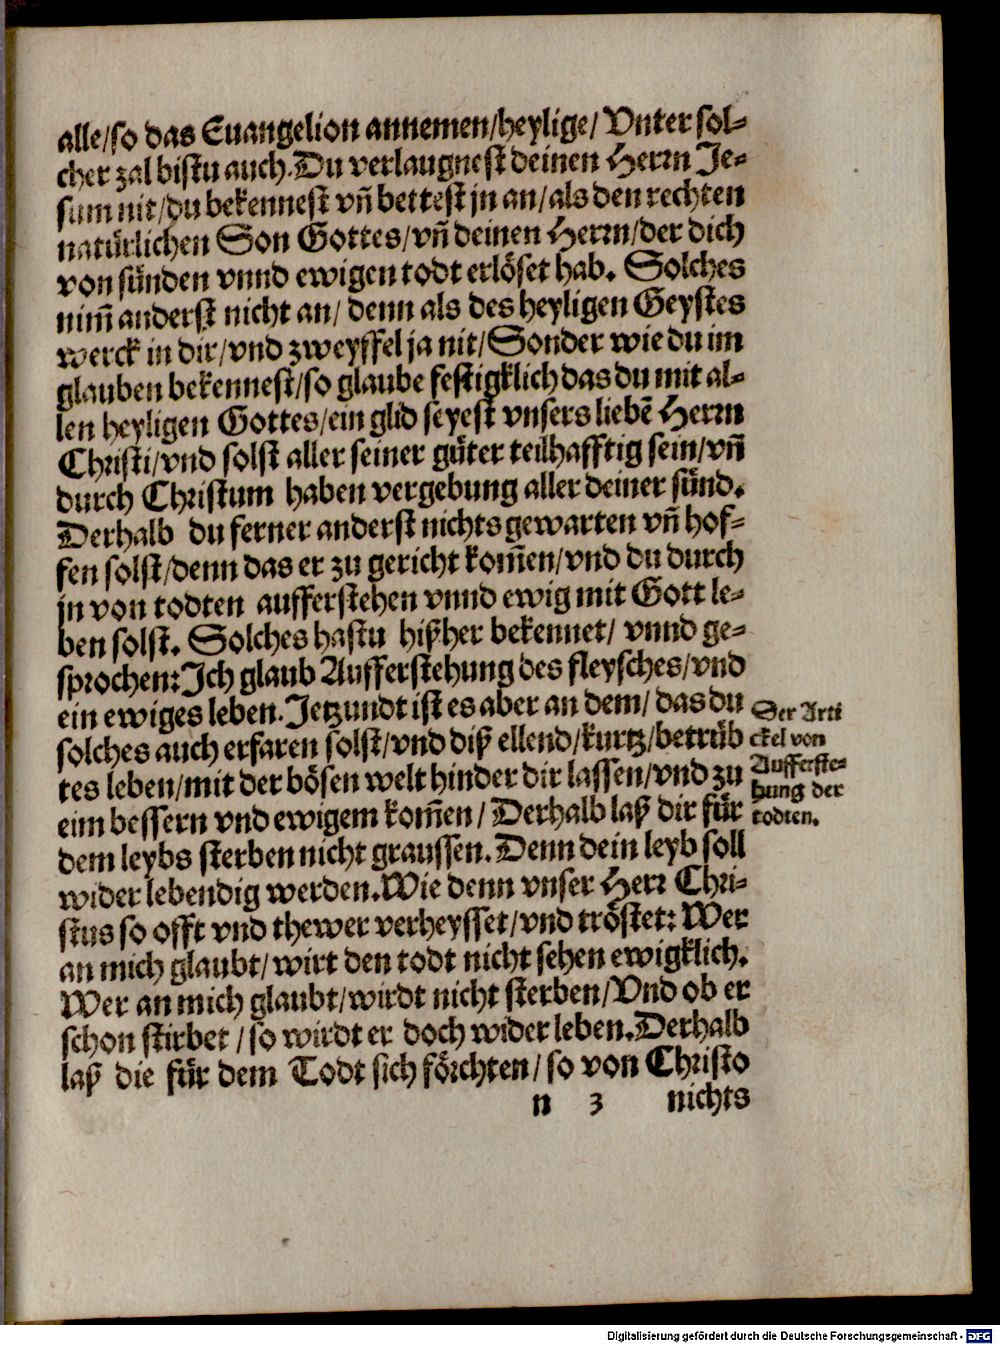 alle/so das Euangelion annemen/heylige/ Vnter sol-
cher zal bistu auch. Du verlaugnest deinen Herrn Je-
sum nit/du bekennest vñ bettest jn an/als den rechten
natürlichen Son Gottes/vñ deinen Herrn/der dich
von sünden vnnd ewigen todt erlöset hab. Solches
nim̃ anderst nicht an/ denn als des heyligen Geystes
werck in dir/vnd zweyffel ja nit/Sonder wie du im
glauben bekennest/so glaube festigklich das du mit al-
len heyligen Gottes/ein glid seyest vnsers liebẽ Herrn
Christi/vnd solst aller seiner güter teilhafftig sein/vñ
durch Christum haben vergebung aller deiner sünd.
Derhalb du ferner anderst nichts gewarten vñ hof-
fen solst/denn das er zu gericht kom̃en/vnd du durch
jn von todten aufferstehen vnnd ewig mit Gott le-
ben solst. Solches hastu hißher bekennet/ vnnd ge-
sprochen: Ich glaub Aufferstehung des fleysches/vnd
ein ewiges leben. Jetzundt ist es aber an dem/ das du
solches auch erfaren solst/vnd diß ellend/kurtz/betrüb
tes leben/mit der bösen welt hinder dir lassen/vnd zu
eim bessern vnd ewigem kom̃en/ Derhalb laß dir für
dem leybs sterben nicht graussen. Denn dein leyb soll
wider lebendig werden. Wie denn vnser Herr Chri-
stus so offt vnd thewer verheysset/vnd tröstet: Wer
an mich glaubt/wirt den todt nicht sehen ewigklich.
Wer an mich glaubt/wirdt nicht sterben/Vnd ob er
schon stirbet/so wirdt er doch wider leben. Derhalb
laß die für dem Todt sich förchten/so von Christo
n 3 nichts
Der Arti
ckel von
Aufferste-
hung der
todten.
Digitalisierung gefördert durch die Deutsche Forschungsgemeinschaft - DFG